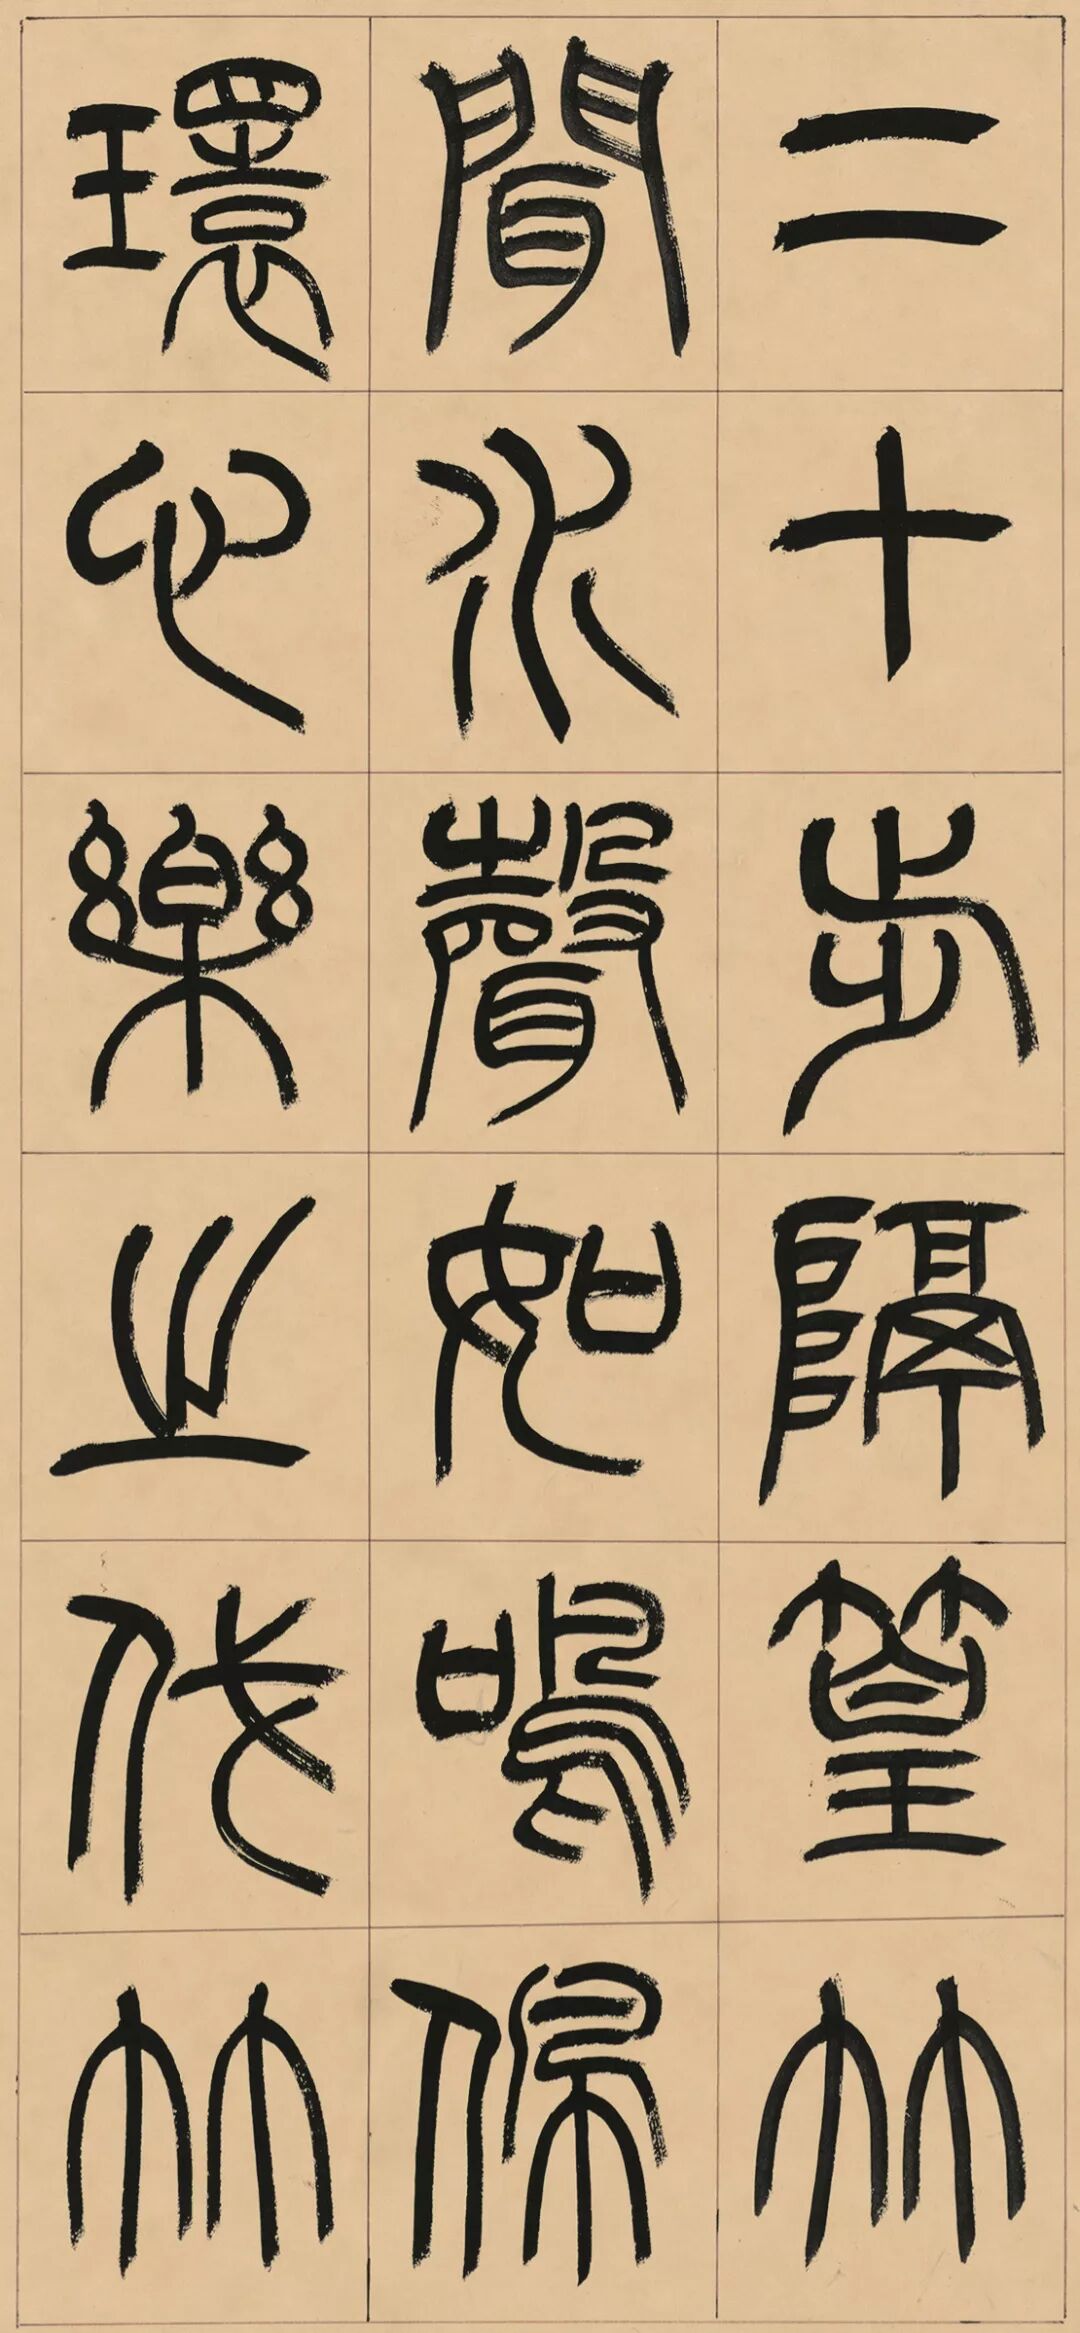 二十步隔篁竹
聞水聲如鳴佩
環心樂之伐竹